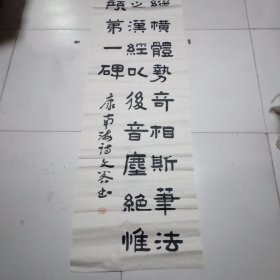 縱橫體勢奇相斯筆法
之漢經以後音塵絕惟
顏第一碑
康南海詩文